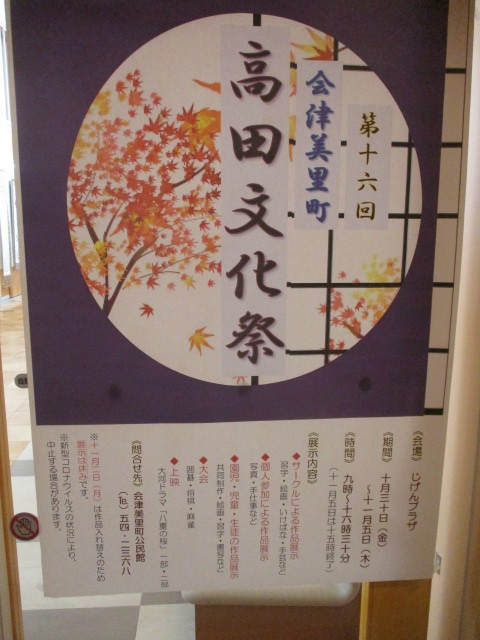 第十六回
会津美里町
高田文化祭
《会場》 じげんプラザ
《期間》 十月三十日(金)
～十一月五日(木)
《時間》 九時～十六時三十分
(十一月五日は十五時終了)
《展示内容》
◆サークルによる作品展示
習字・絵画・いけばな・手芸など
◆個人参加による作品展示
写真・手仕事など
◆園児・児童・生徒の作品展示
共同制作・絵画・習字・書写など
◆大会
囲碁・将棋・麻雀
◆上映
大河ドラマ「八重の桜」一部・二部
《問合せ先》 会津美里町公民館
(℡)五四-二三六八
※十一月二日(月)は作品入れ替えのため
展示は休みです。
※新型コロナウイルスの状況により、
中止する場合があります。